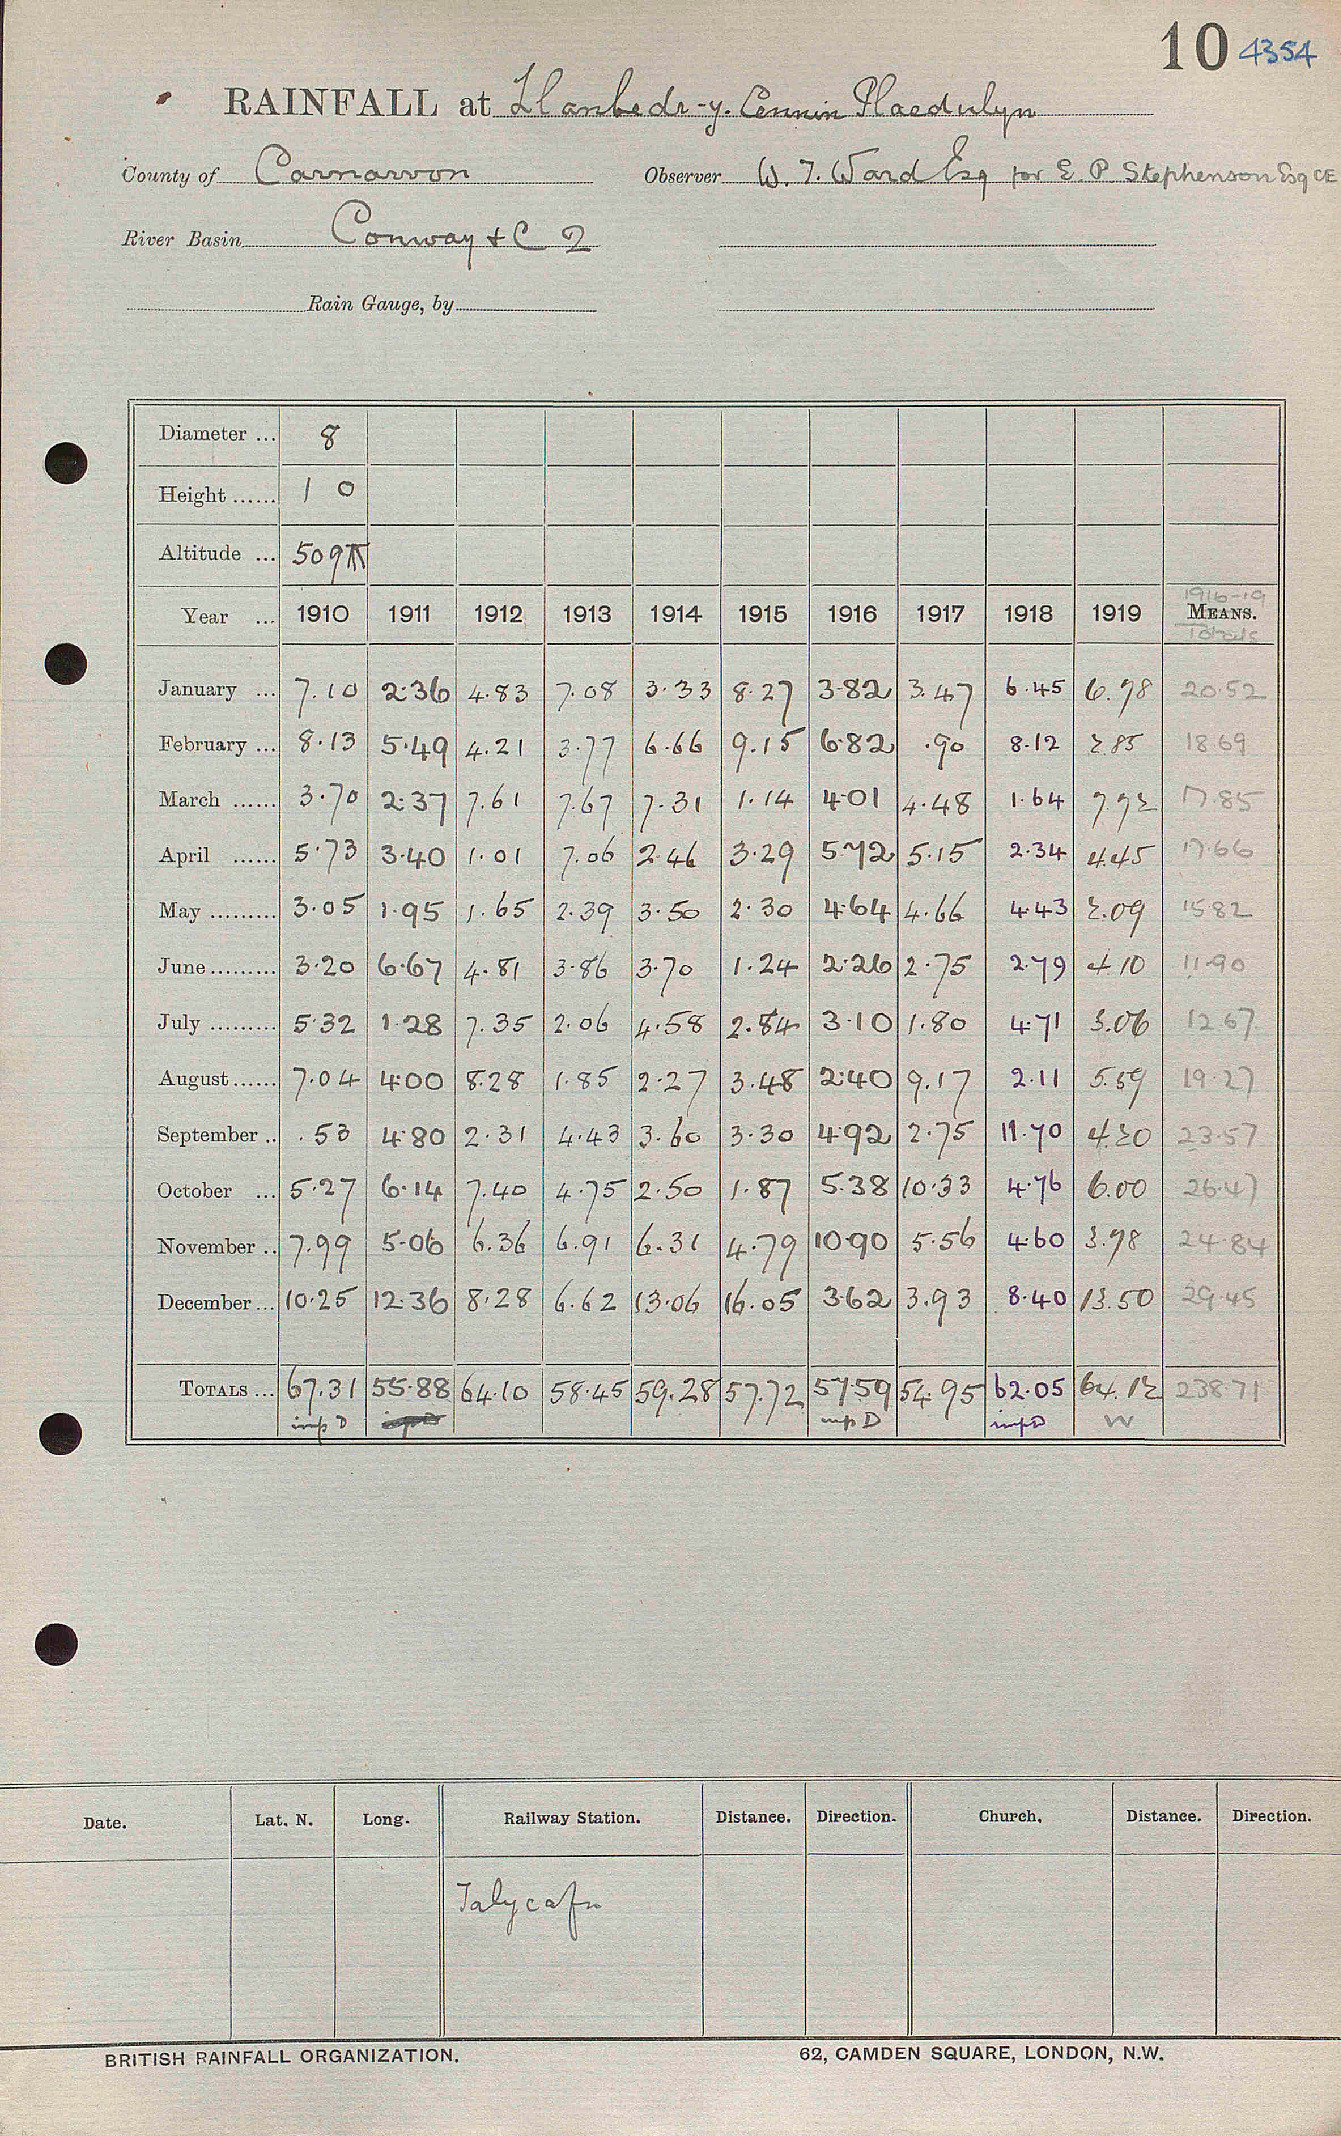 10 4354
RAINFALL at Llanbedr-y-Cennin Plaedulyn
County of Carnarvon Observer W. T. Ward Esq for E. P Stephenson Esq CE
River Basin Conway + C 2
Rain Gauge, by
Diameter ... 8
Height ...... 1 0
Altitude ... 509
1916-19
Year ... 1910 1911 1912 1913 1914 1915 1916 1917 1918 1919 MEANS.
Totals
January ... 7.10 2.36 4.83 7.08 3.33 8.27 3.82 3.47 6.45 6.78 20.52
February ... 8.13 5.49 4.21 3.77 6.66 9.15 6.82 .90 8.12 2.85 18.69
March ...... 3.70 2.37 7.61 7.67 7.31 1.14 4.01 4.48 1.64 7.72 17.85
April ...... 5.73 3.40 1.01 7.06 2.46 3.29 5.72 5.15 2.34 4.45 17.66
May ......... 3.05 1.95 1.65 2.39 3.50 2.30 4.64 4.66 4.43 2.09 15.82
June ......... 3.20 6.67 4.81 3.86 3.70 1.24 2.26 2.75 2.79 4.10 11.90
July ......... 5.32 1.28 7.35 2.06 4.58 2.84 3.10 1.80 4.71 3.06 12.67
August ...... 7.04 4.00 8.28 1.85 2.27 3.48 2.40 9.17 2.11 5.59 19.27
September .. .53 4.80 2.31 4.43 3.60 3.30 4.92 2.75 11.70 4.20 23.57
October ... 5.27 6.14 7.40 4.75 2.50 1.87 5.38 10.33 4.76 6.00 26.47
November .. 7.99 5.06 6.36 6.91 6.31 4.79 10.90 5.56 4.60 3.78 24.84
December ... 10.25 12.36 8.28 6.62 13.06 16.05 3.62 3.93 8.40 13.50 29.45
TOTALS ... 67.31 55.88 64.10 58.45 59.28 57.72 57.59 54.95 62.05 64.12 238.71
imp D imp D imp D W
Date. Lat. N. Long. Railway Station. Distance. Direction. Church. Distance. Direction.
Talycafn
BRITISH RAINFALL ORGANIZATION. 62, CAMDEN SQUARE, LONDON, N.W.